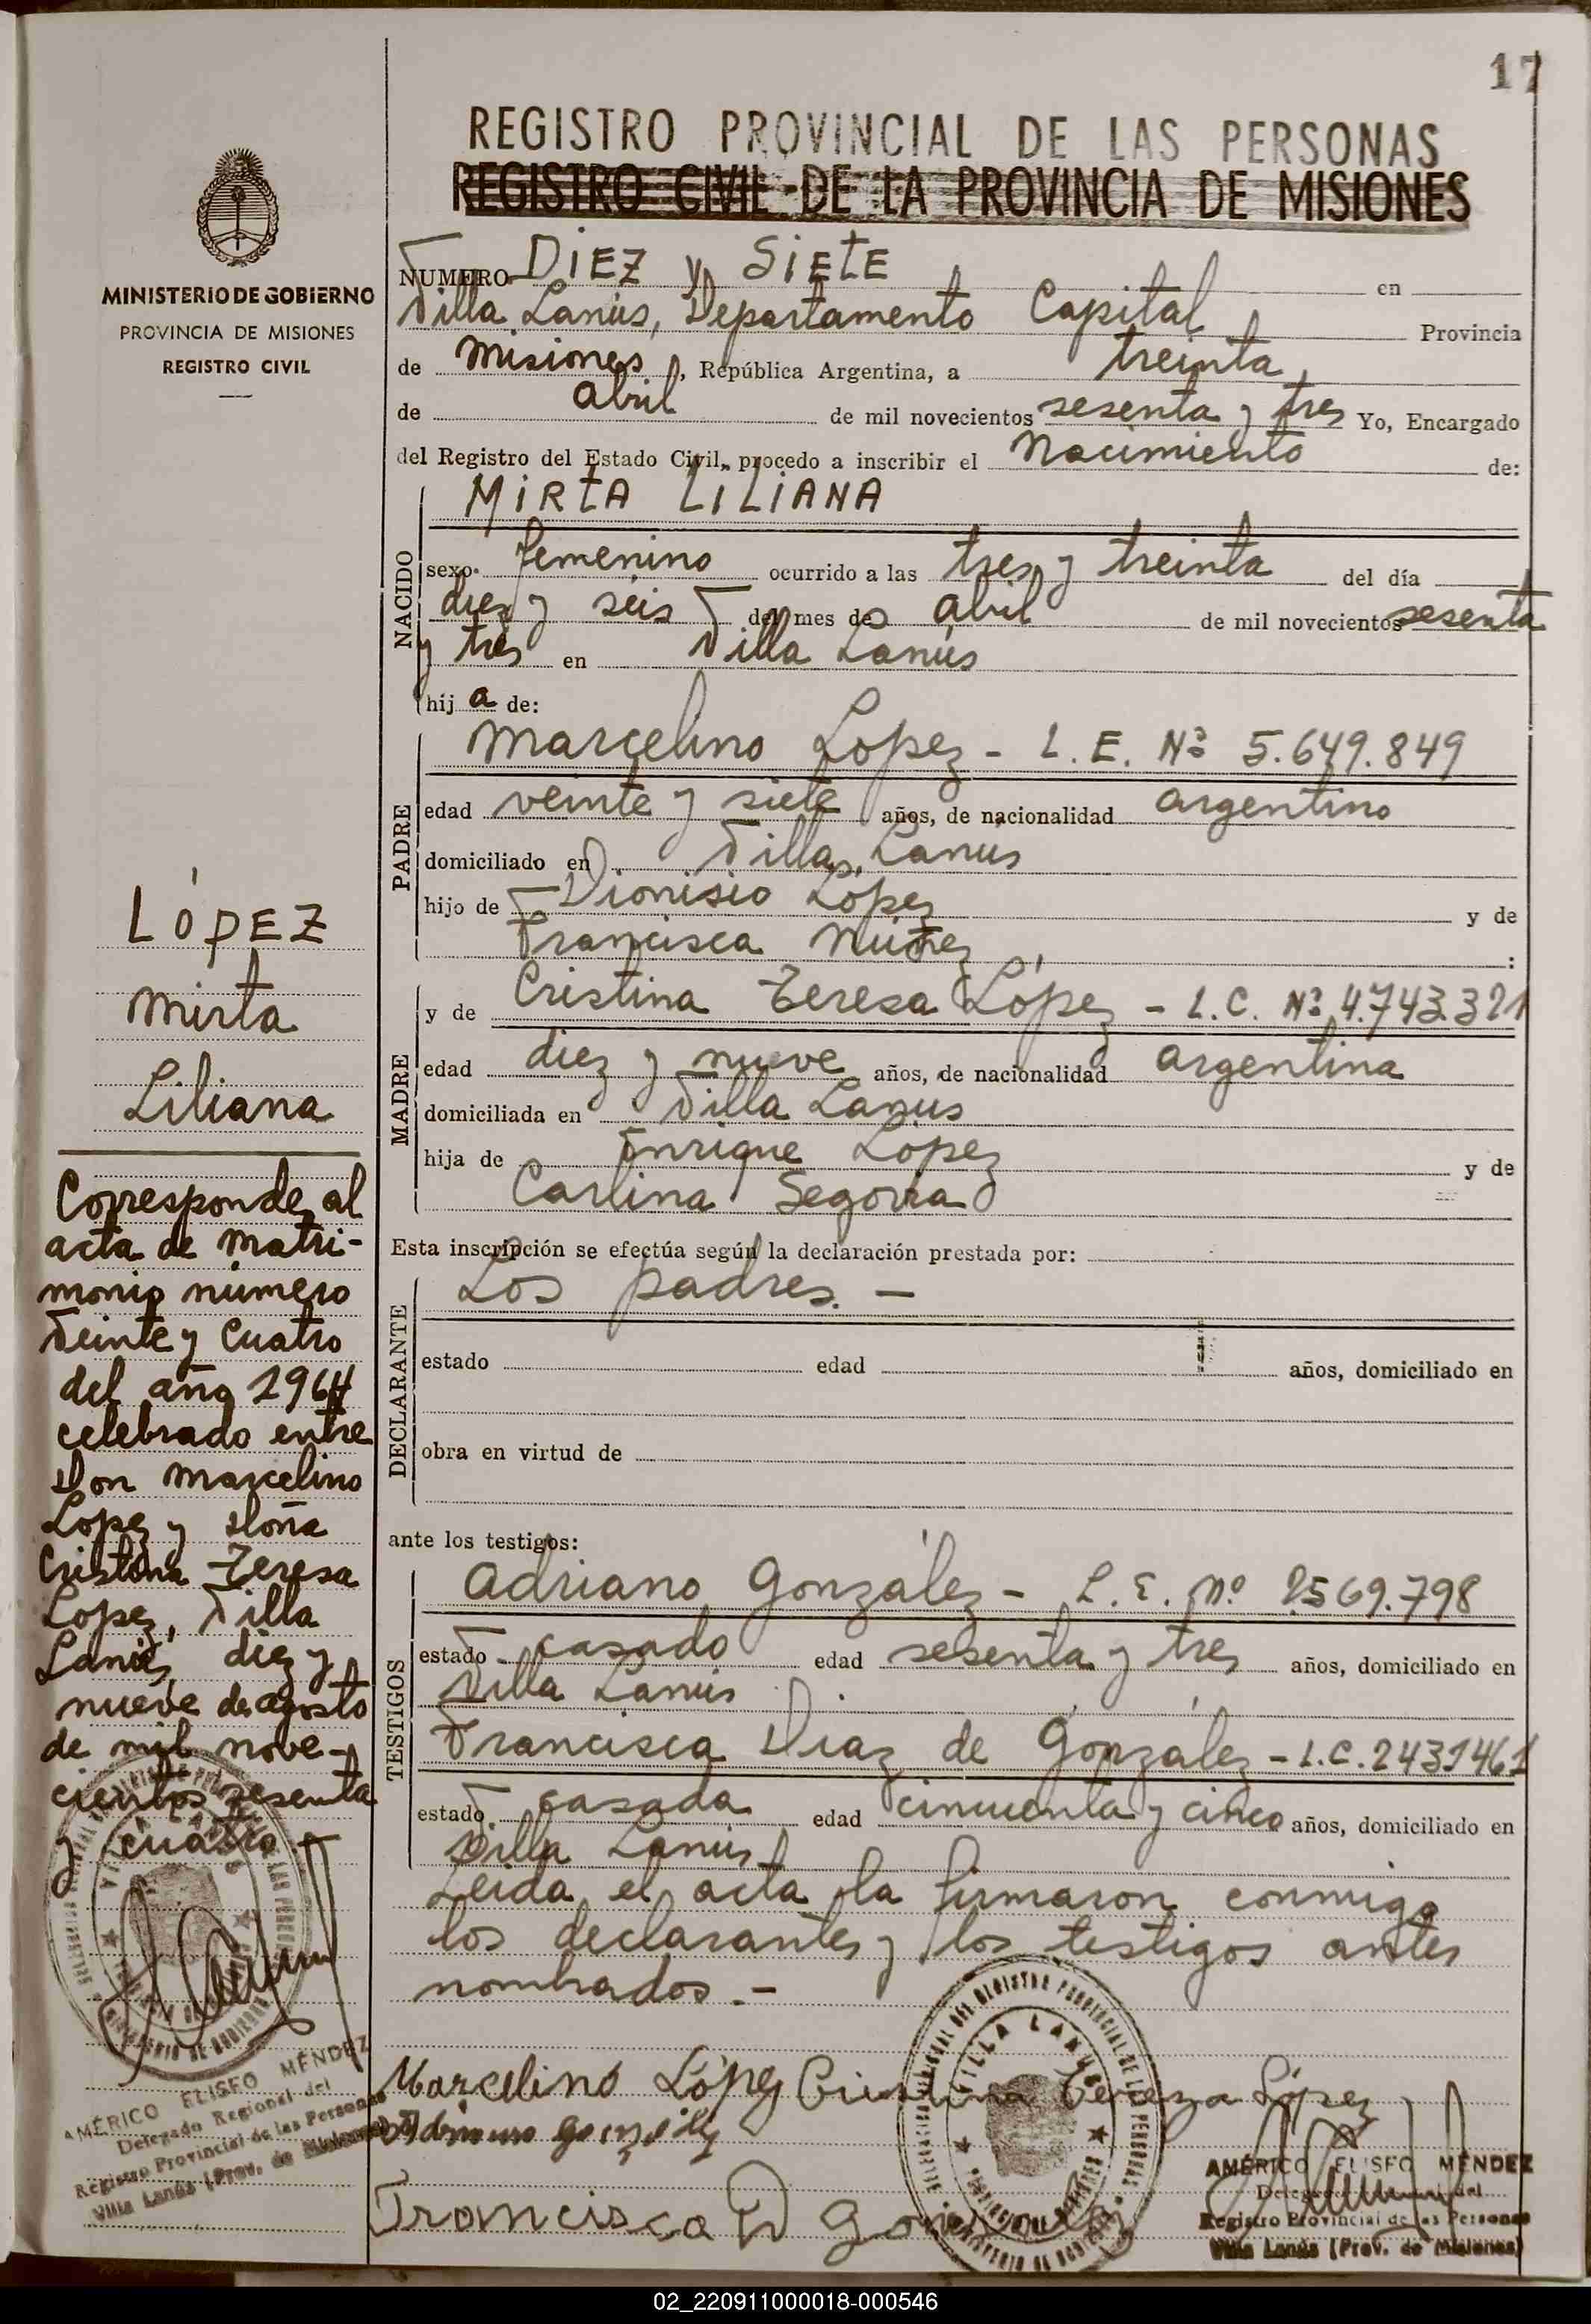 17
REGISTRO PROVINCIAL DE LAS PERSONAS
REGISTRO CIVIL DE LA PROVINCIA DE MISIONES
MINISTERIO DE GOBIERNO
PROVINCIA DE MISIONES
REGISTRO CIVIL
NUMERO DIEZ y SIETE en
Villa Lanús, Departamento Capital Provincia
de Misiones, República Argentina, a treinta
de Abril de mil novecientos sesenta y tres Yo, Encargado
del Registro del Estado Civil, procedo a inscribir el Nacimiento de:
NACIDO
MIRTA LILIANA
sexo femenino ocurrido a las tres y treinta del día
diez y seis del mes de Abril de mil novecientos sesenta
y tres en Villa Lanús
hij a de:
PADRE
Marcelino Lopez - L. E. Nº 5.649.849
edad veinte y siete años, de nacionalidad argentino
domiciliado en Villa Lanús
hijo de Dionisio López y de
Francisca Núñez :
MADRE
y de Cristina Teresa López - L.C. Nº 4.743.321
edad diez y nueve años, de nacionalidad argentina
domiciliada en Villa Lanus
hija de Enrique López y de
Carlina Segovia
Esta inscripción se efectúa según la declaración prestada por:
DECLARANTE
Los padres. -
estado edad años, domiciliado en
obra en virtud de
ante los testigos:
TESTIGOS
Adriano González - L. E. Nº 2569.798
estado casado edad sesenta y tres años, domiciliado en
Villa Lanús
Francisca Diaz de González - L.C. 2431461
estado casada edad cincuenta y cinco años, domiciliado en
Villa Lanus
Leida el acta la firmaron conmigo
los declarantes y los testigos antes
nombrados. -
Marcelino López Cristina Tereza López
Adriano González
Francisca D Gonzalez
VILLA LANUS
AMÉRICO ELISEO MÉNDEZ
Delegado Regional del
Registro Provincial de las Personas
Villa Lanús (Prov. de Misiones)
LÓPEZ
Mirta
Liliana
Corresponde al
acta de matri-
monio número
Veinte y cuatro
del año 1964
celebrado entre
Don Marcelino
Lopez y doña
Cristina Teresa
Lopez, Villa
Lanús, diez y
nueve de agosto
de mil nove-
cientos sesenta
y cuatro -
AMÉRICO ELISEO MÉNDEZ
Delegado Regional del
Registro Provincial de las Personas
Villa Lanús (Prov. de Misiones)
02_220911000018-000546